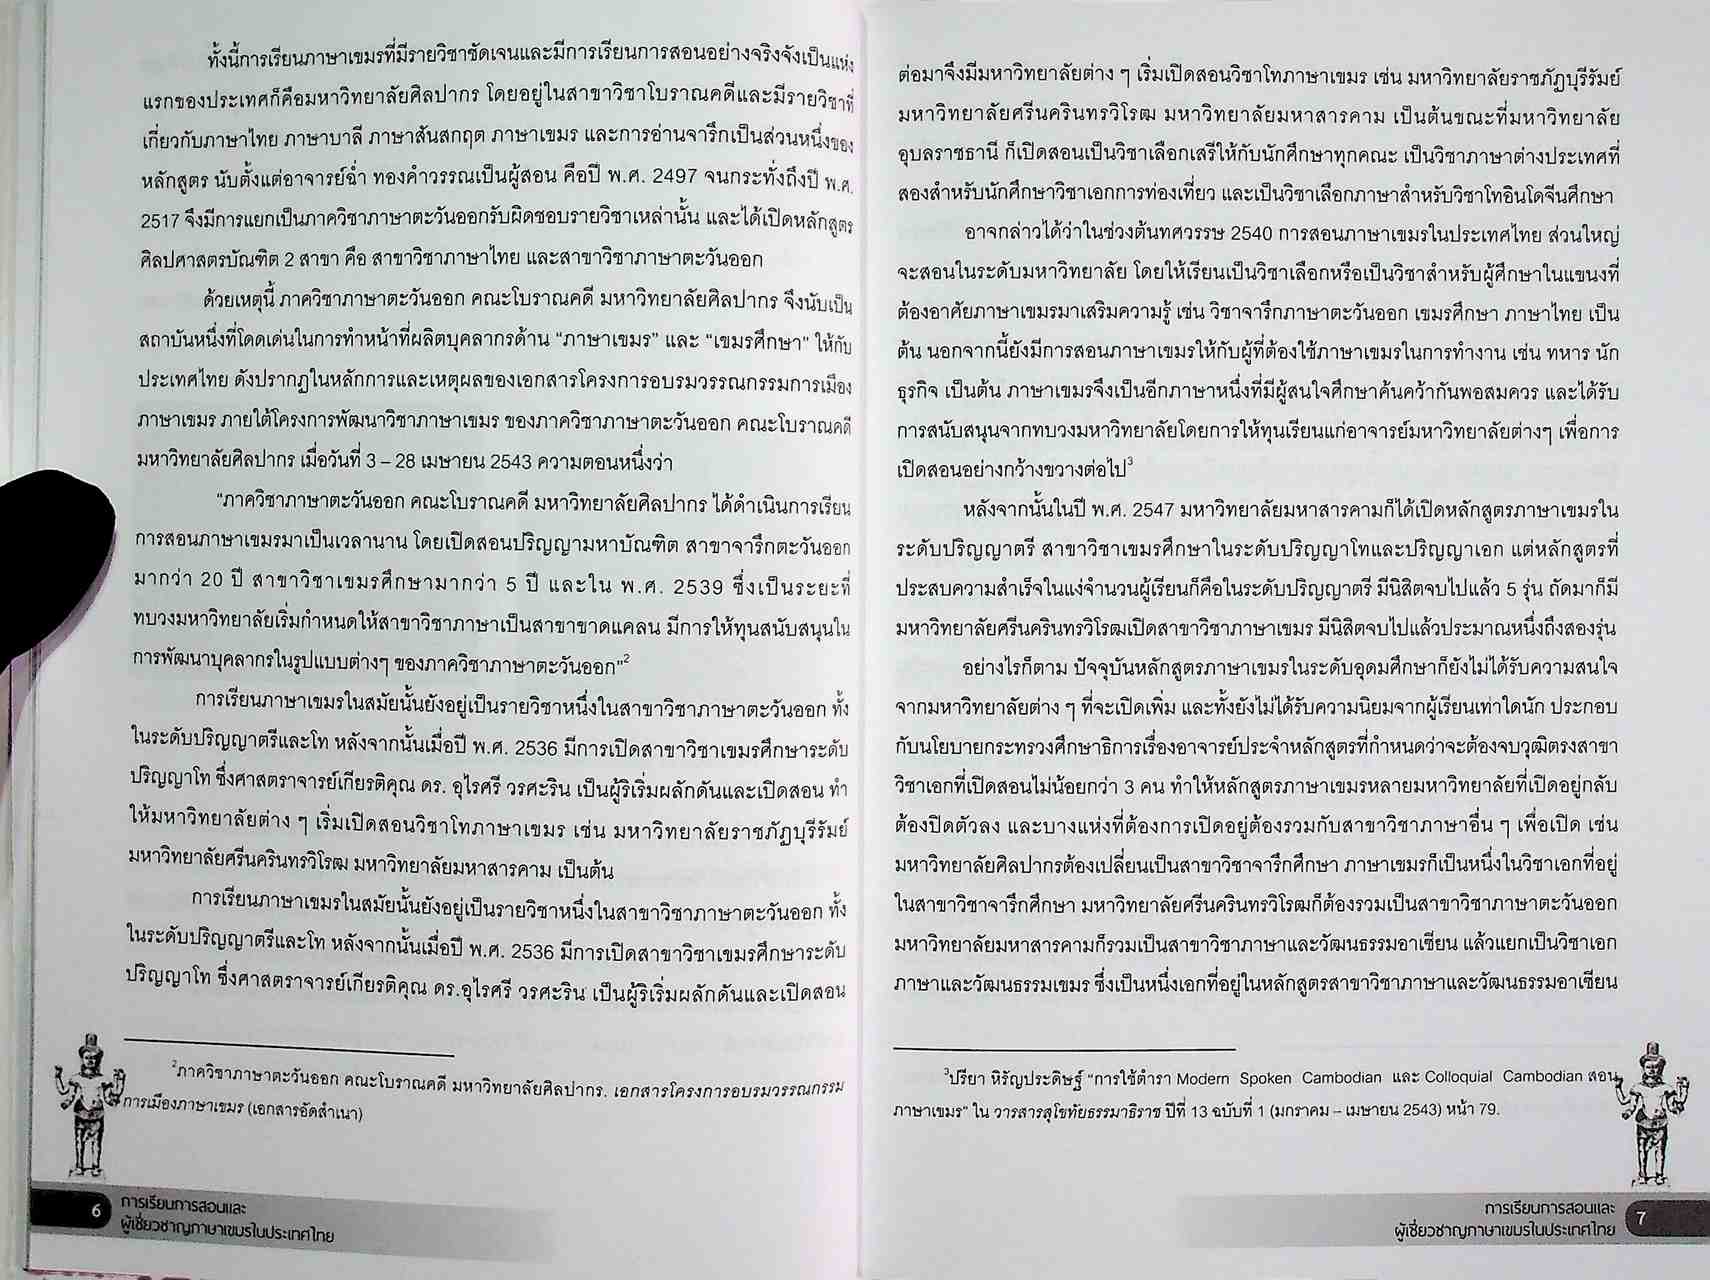 ทั้งนี้การเรียนภาษาเขมรที่มีรายวิชาชัดเจนและมีการเรียนการสอนอย่างจริงจังเป็นแห่ง
แรกของประเทศก็คือมหาวิทยาลัยศิลปากร โดยอยู่ในสาขาวิชาโบราณคดีและมีรายวิชาที่
เกี่ยวกับภาษาไทย ภาษาบาลี ภาษาสันสกฤต ภาษาเขมร และการอ่านจารึกเป็นส่วนหนึ่งของ
หลักสูตร นับตั้งแต่อาจารย์ฉ่ำ ทองคำวรรณเป็นผู้สอน คือปี พ.ศ. 2497 จนกระทั่งถึงปี พ.ศ.
2517 จึงมีการแยกเป็นภาควิชาภาษาตะวันออกรับผิดชอบรายวิชาเหล่านั้น และได้เปิดหลักสูตร
ศิลปศาสตรบัณฑิต 2 สาขา คือ สาขาวิชาภาษาไทย และสาขาวิชาภาษาตะวันออก
ด้วยเหตุนี้ ภาควิชาภาษาตะวันออก คณะโบราณคดี มหาวิทยาลัยศิลปากร จึงนับเป็น
สถาบันหนึ่งที่โดดเด่นในการทำหน้าที่ผลิตบุคลากรด้าน "ภาษาเขมร" และ "เขมรศึกษา" ให้กับ
ประเทศไทย ดังปรากฏในหลักการและเหตุผลของเอกสารโครงการอบรมวรรณกรรมการเมือง
ภาษาเขมร ภายใต้โครงการพัฒนาวิชาภาษาเขมร ของภาควิชาภาษาตะวันออก คณะโบราณคดี
มหาวิทยาลัยศิลปากร เมื่อวันที่ 3 – 28 เมษายน 2543 ความตอนหนึ่งว่า
"ภาควิชาภาษาตะวันออก คณะโบราณคดี มหาวิทยาลัยศิลปากร ได้ดำเนินการเรียน
การสอนภาษาเขมรมาเป็นเวลานาน โดยเปิดสอนปริญญามหาบัณฑิต สาขาจารึกตะวันออก
มากว่า 20 ปี สาขาวิชาเขมรศึกษามากว่า 5 ปี และใน พ.ศ. 2539 ซึ่งเป็นระยะที่
ทบวงมหาวิทยาลัยเริ่มกำหนดให้สาขาวิชาภาษาเป็นสาขาขาดแคลน มีการให้ทุนสนับสนุนใน
การพัฒนาบุคลากรในรูปแบบต่างๆ ของภาควิชาภาษาตะวันออก"2
การเรียนภาษาเขมรในสมัยนั้นยังอยู่เป็นรายวิชาหนึ่งในสาขาวิชาภาษาตะวันออก ทั้ง
ในระดับปริญญาตรีและโท หลังจากนั้นเมื่อปี พ.ศ. 2536 มีการเปิดสาขาวิชาเขมรศึกษาระดับ
ปริญญาโท ซึ่งศาสตราจารย์เกียรติคุณ ดร. อุไรศรี วรศะริน เป็นผู้ริเริ่มผลักดันและเปิดสอน ทำ
ให้มหาวิทยาลัยต่าง ๆ เริ่มเปิดสอนวิชาโทภาษาเขมร เช่น มหาวิทยาลัยราชภัฏบุรีรัมย์
มหาวิทยาลัยศรีนครินทรวิโรฒ มหาวิทยาลัยมหาสารคาม เป็นต้น
การเรียนภาษาเขมรในสมัยนั้นยังอยู่เป็นรายวิชาหนึ่งในสาขาวิชาภาษาตะวันออก ทั้ง
ในระดับปริญญาตรีและโท หลังจากนั้นเมื่อปี พ.ศ. 2536 มีการเปิดสาขาวิชาเขมรศึกษาระดับ
ปริญญาโท ซึ่งศาสตราจารย์เกียรติคุณ ดร.อุไรศรี วรศะริน เป็นผู้ริเริ่มผลักดันและเปิดสอน
2ภาควิชาภาษาตะวันออก คณะโบราณคดี มหาวิทยาลัยศิลปากร. เอกสารโครงการอบรมวรรณกรรม
การเมืองภาษาเขมร (เอกสารอัดสำเนา)
6 การเรียนการสอนและ
ผู้เชี่ยวชาญภาษาเขมรในประเทศไทย
ต่อมาจึงมีมหาวิทยาลัยต่าง ๆ เริ่มเปิดสอนวิชาโทภาษาเขมร เช่น มหาวิทยาลัยราชภัฏบุรีรัมย์
มหาวิทยาลัยศรีนครินทรวิโรฒ มหาวิทยาลัยมหาสารคาม เป็นต้นขณะที่มหาวิทยาลัย
อุบลราชธานี ก็เปิดสอนเป็นวิชาเลือกเสรีให้กับนักศึกษาทุกคณะ เป็นวิชาภาษาต่างประเทศที่
สองสำหรับนักศึกษาวิชาเอกการท่องเที่ยว และเป็นวิชาเลือกภาษาสำหรับวิชาโทอินโดจีนศึกษา
อาจกล่าวได้ว่าในช่วงต้นทศวรรษ 2540 การสอนภาษาเขมรในประเทศไทย ส่วนใหญ่
จะสอนในระดับมหาวิทยาลัย โดยให้เรียนเป็นวิชาเลือกหรือเป็นวิชาสำหรับผู้ศึกษาในแขนงที่
ต้องอาศัยภาษาเขมรมาเสริมความรู้ เช่น วิชาจารึกภาษาตะวันออก เขมรศึกษา ภาษาไทย เป็น
ต้น นอกจากนี้ยังมีการสอนภาษาเขมรให้กับผู้ที่ต้องใช้ภาษาเขมรในการทำงาน เช่น ทหาร นัก
ธุรกิจ เป็นต้น ภาษาเขมรจึงเป็นอีกภาษาหนึ่งที่มีผู้สนใจศึกษาค้นคว้ากันพอสมควร และได้รับ
การสนับสนุนจากทบวงมหาวิทยาลัยโดยการให้ทุนเรียนแก่อาจารย์มหาวิทยาลัยต่างๆ เพื่อการ
เปิดสอนอย่างกว้างขวางต่อไป3
หลังจากนั้นในปี พ.ศ. 2547 มหาวิทยาลัยมหาสารคามก็ได้เปิดหลักสูตรภาษาเขมรใน
ระดับปริญญาตรี สาขาวิชาเขมรศึกษาในระดับปริญญาโทและปริญญาเอก แต่หลักสูตรที่
ประสบความสำเร็จในแง่จำนวนผู้เรียนก็คือในระดับปริญญาตรี มีนิสิตจบไปแล้ว 5 รุ่น ถัดมาก็มี
มหาวิทยาลัยศรีนครินทรวิโรฒเปิดสาขาวิชาภาษาเขมร มีนิสิตจบไปแล้วประมาณหนึ่งถึงสองรุ่น
อย่างไรก็ตาม ปัจจุบันหลักสูตรภาษาเขมรในระดับอุดมศึกษาก็ยังไม่ได้รับความสนใจ
จากมหาวิทยาลัยต่าง ๆ ที่จะเปิดเพิ่ม และทั้งยังไม่ได้รับความนิยมจากผู้เรียนเท่าใดนัก ประกอบ
กับนโยบายกระทรวงศึกษาธิการเรื่องอาจารย์ประจำหลักสูตรที่กำหนดว่าจะต้องจบวุฒิตรงสาขา
วิชาเอกที่เปิดสอนไม่น้อยกว่า 3 คน ทำให้หลักสูตรภาษาเขมรหลายมหาวิทยาลัยที่เปิดอยู่กลับ
ต้องปิดตัวลง และบางแห่งที่ต้องการเปิดอยู่ต้องรวมกับสาขาวิชาภาษาอื่น ๆ เพื่อเปิด เช่น
มหาวิทยาลัยศิลปากรต้องเปลี่ยนเป็นสาขาวิชาจารึกศึกษา ภาษาเขมรก็เป็นหนึ่งในวิชาเอกที่อยู่
ในสาขาวิชาจารึกศึกษา มหาวิทยาลัยศรีนครินทรวิโรฒก็ต้องรวมเป็นสาขาวิชาภาษาตะวันออก
มหาวิทยาลัยมหาสารคามก็รวมเป็นสาขาวิชาภาษาและวัฒนธรรมอาเซียน แล้วแยกเป็นวิชาเอก
ภาษาและวัฒนธรรมเขมร ซึ่งเป็นหนึ่งเอกที่อยู่ในหลักสูตรสาขาวิชาภาษาและวัฒนธรรมอาเซียน
3ปรียา หิรัญประดิษฐ์ "การใช้ตำรา Modern Spoken Cambodian และ Colloquial Cambodian สอน
ภาษาเขมร" ใน วารสารสุโขทัยธรรมาธิราช ปีที่ 13 ฉบับที่ 1 (มกราคม – เมษายน 2543) หน้า 79.
การเรียนการสอนและ 7
ผู้เชี่ยวชาญภาษาเขมรในประเทศไทย